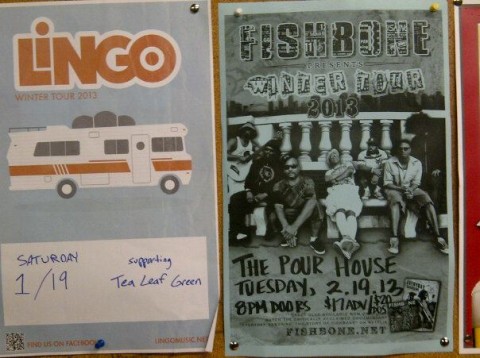 LiNGO
WINTER TOUR 2013
SATURDAY
1/19
supporting
Tea Leaf Green
FIND US ON FACEBOOK
LINGOMUSIC.NET
FISHBONE
PRESENTS
WINTER TOUR
2013
THE POUR HOUSE
TUESDAY, 2.19.13
8PM DOORS $17 ADV/$20 DOS
FISHBONE.NET